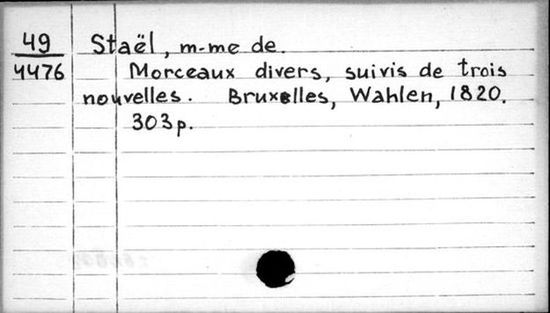 49 Staël, m-me de.
4476 Morceaux divers, suivis de trois
nouvelles. Bruxelles, Wahlen, 1820.
303 p.